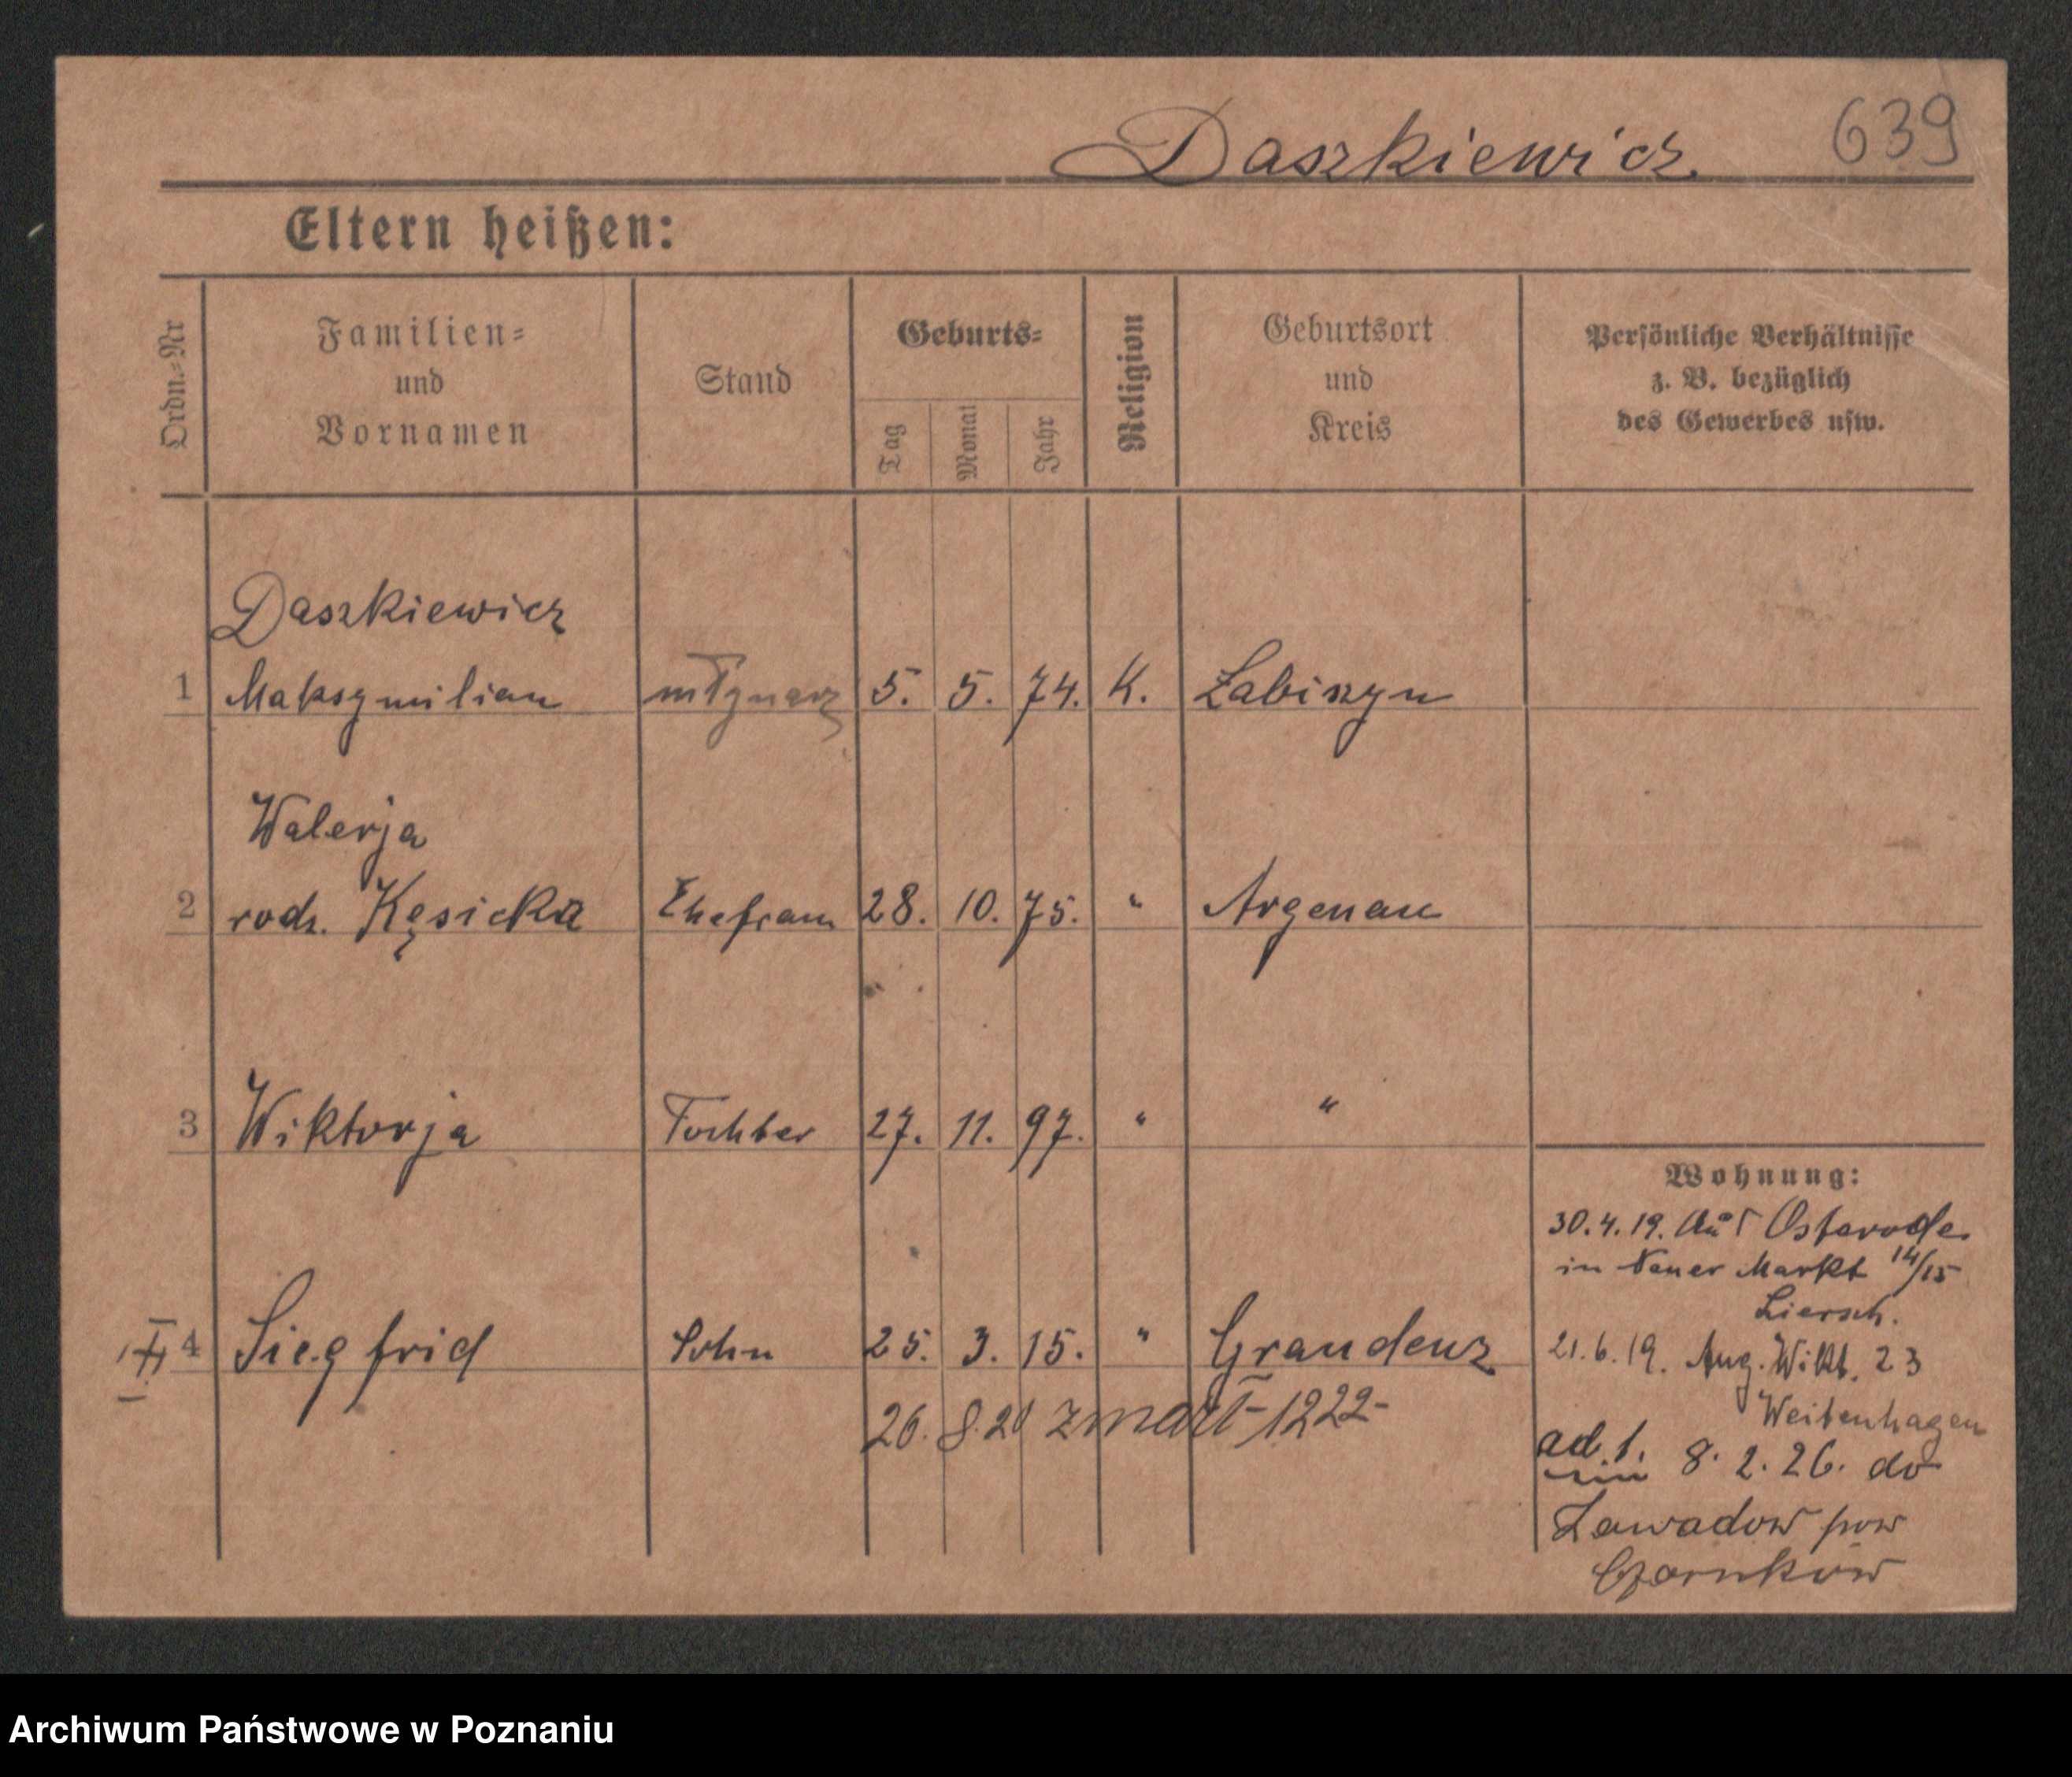 Daszkiewicz 639
Eltern heißen:
Ordn.-Nr
Familien-
und
Vornamen
Stand
Geburts-
Tag
Monat
Jahr
Religion
Geburtsort
und
Kreis
Persönliche Verhältnisse
z. B. bezüglich
des Gewerbes usw.
Daszkiewicz
1 Maksymilian młynarz 5. 5. 74. K. Łabiszyn
Walerja
2 rodz. Kęsicka Ehefrau 28. 10. 75. " Argenau
3 Wiktorja Tochter 27. 11. 97. " "
4 Siegfrid Sohn 25. 3. 15. " Graudenz
26. 8. 20 zmarł 1222
Wohnung:
30. 4. 19. aus Osterode
in Neuer Markt 14/15
Liersch.
21. 6. 19. Aug. Wikt. 23
Weitenhagen
ad. 1. 8. 2. 26. do
Zawadow pow
Czarnków
Archiwum Państwowe w Poznaniu